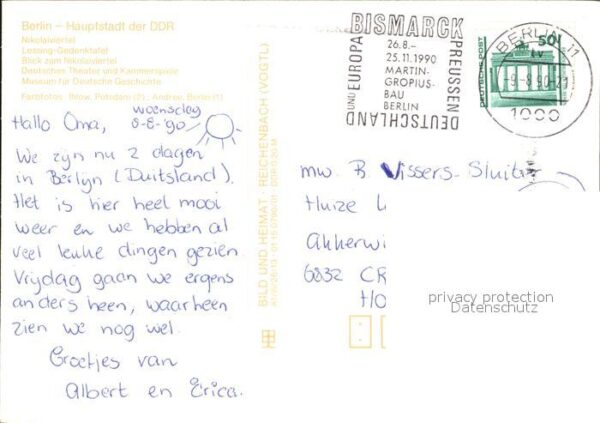 Berlin – Hauptstadt der DDR
Nikolaiviertel
Lessing-Gedenktafel
Blick zum Nikolaiviertel
Deutsches Theater und Kammerspiele
Museum für Deutsche Geschichte
Farbfotos: Ihlow, Potsdam (2); Andree, Berlin (1)
woensdag
8-8-'90
Hallo Oma,
We zyn nu 2 dagen
in Berlyn (Duitsland).
Het is hier heel mooi
weer en we hebben al
veel leuke dingen gezien.
Vrijdag gaan we ergens
anders heen, waarheen
zien we nog wel.
Groetjes van
Albert en Erica.
BILD UND HEIMAT REICHENBACH (VOGTL)
BISMARCK
PREUSSEN
DEUTSCHLAND
UND EUROPA
26.8.–
25.11.1990
MARTIN-
GROPIUS-
BAU
BERLIN
DEUTSCHE POST
50
BERLIN 11
-9.-8.90-21
1000
mw. B. Vissers-Sluit
Huize
Akkerwi
6832 CR
HO
privacy protection
Datenschutz